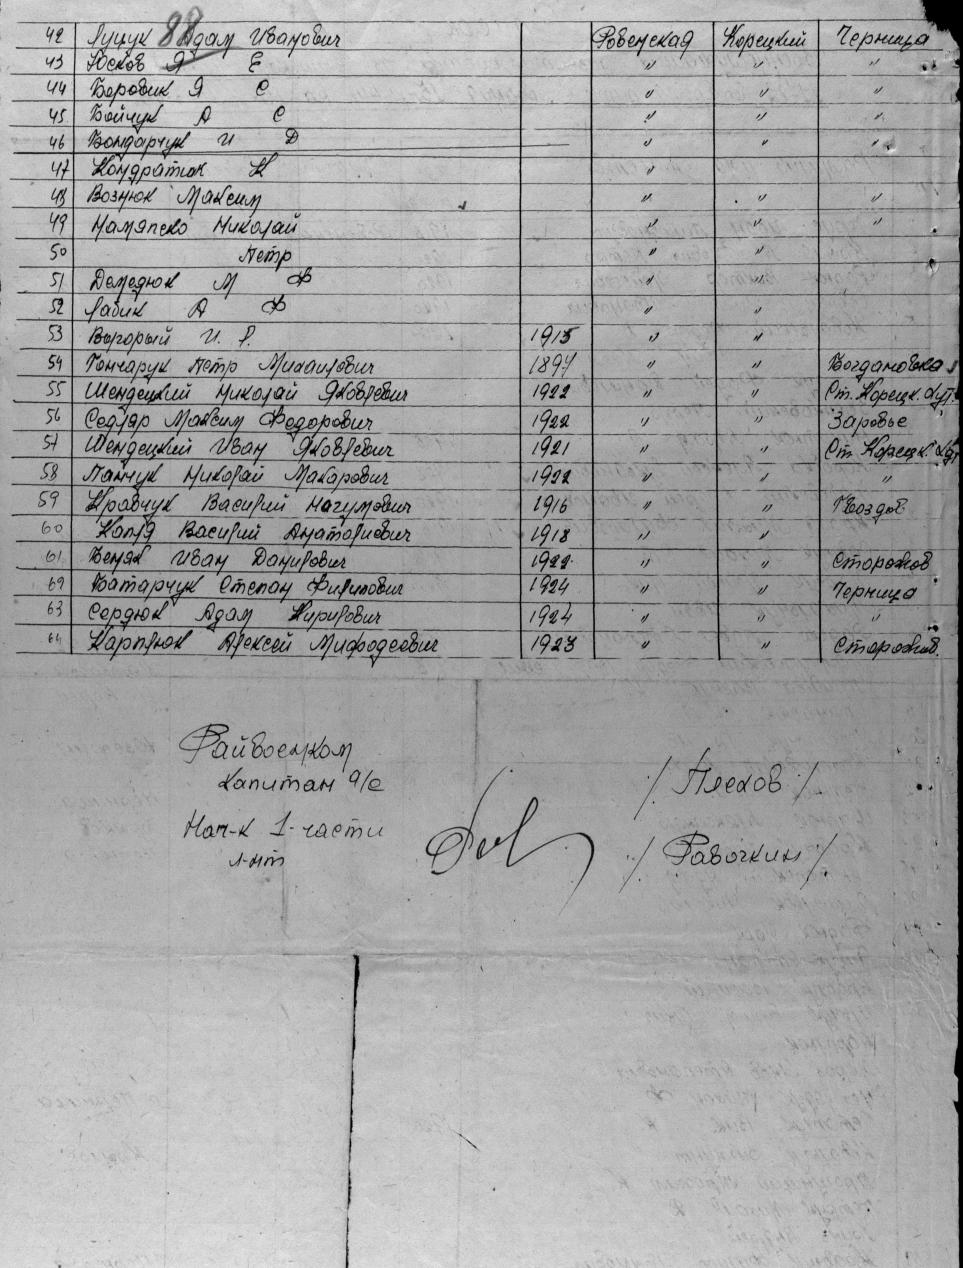 88
42 Луцук Адам Иванович Ровенская Корецкий Черница
43 Юсков Я Е " " "
44 Боровик Я С " " "
45 Бойчук А С " " "
46 Бондарчук И Д " " "
47 Кондратюк К "
48 Вознюк Максим " " "
49 Николай " " "
50 Петр " "
51 Демедюк М Ф " "
52 Лабик А Ф " "
53 Выгорый И. 1915 " "
54 Гончарук Петр Михайлович 1897 " " Богдановка
55 Шендецкий Николай Яковлевич 1922 " " Ст. Корецк. хут.
56 Седляр Максим Федорович 1922 " " Заровье
57 Шендецкий Иван Яковлевич 1921 " " Ст. Корецк.
58 Панчук Николай Макарович 1922 " " "
59 Кравчук Василий Наумович 1916 " " Гвоздов
60 Капля Василий Анатолиевич 1918 " "
61 Беняк Иван Данилович 1922 " " Сторожов
62 Батарчук Степан Филипович 1924 " " Черница
63 Сердюк Адам Кирилович 1924 " " "
64 Карпюк Алексей Мифодеевич 1923 " " Сторожов.
Райвоенком
капитан а/с / Песков /
Нач-к 1-части
л-нт / Равочкин /